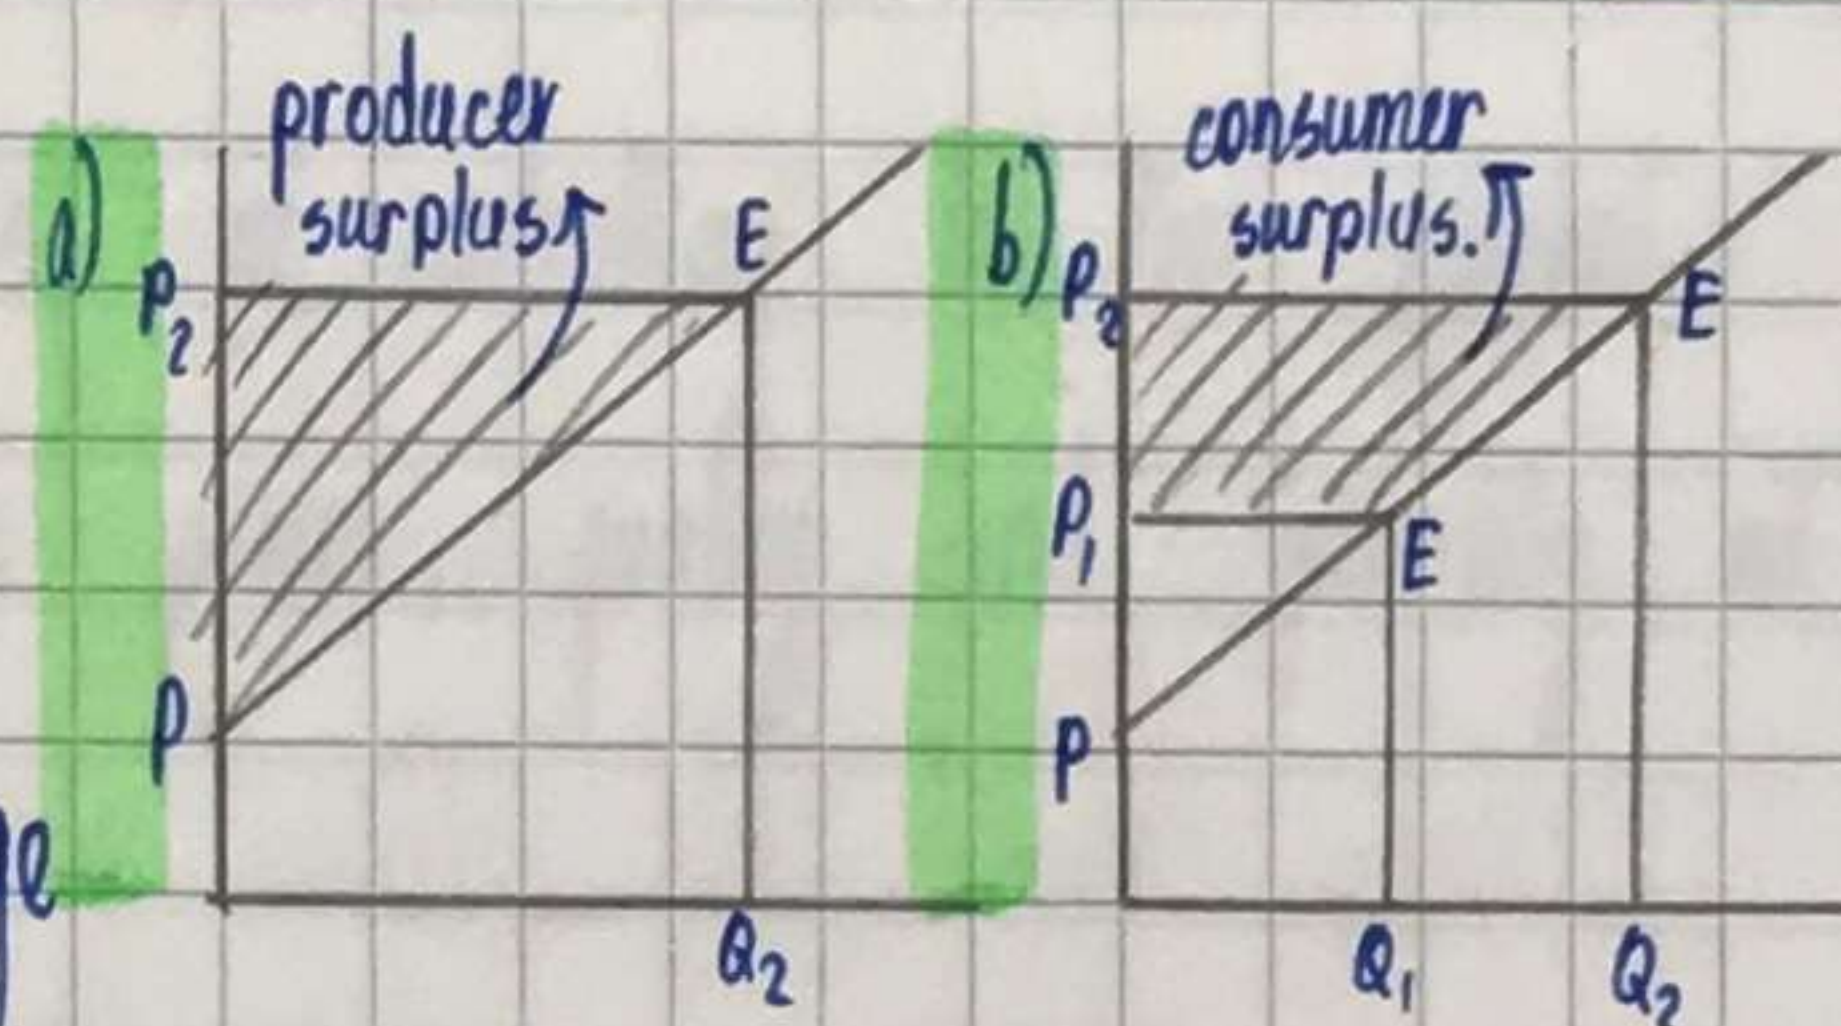 a)
producer
surplus
P2
E
P
Q2
b)
consumer
surplus.
P2
E
P1
E
P
Q1
Q2